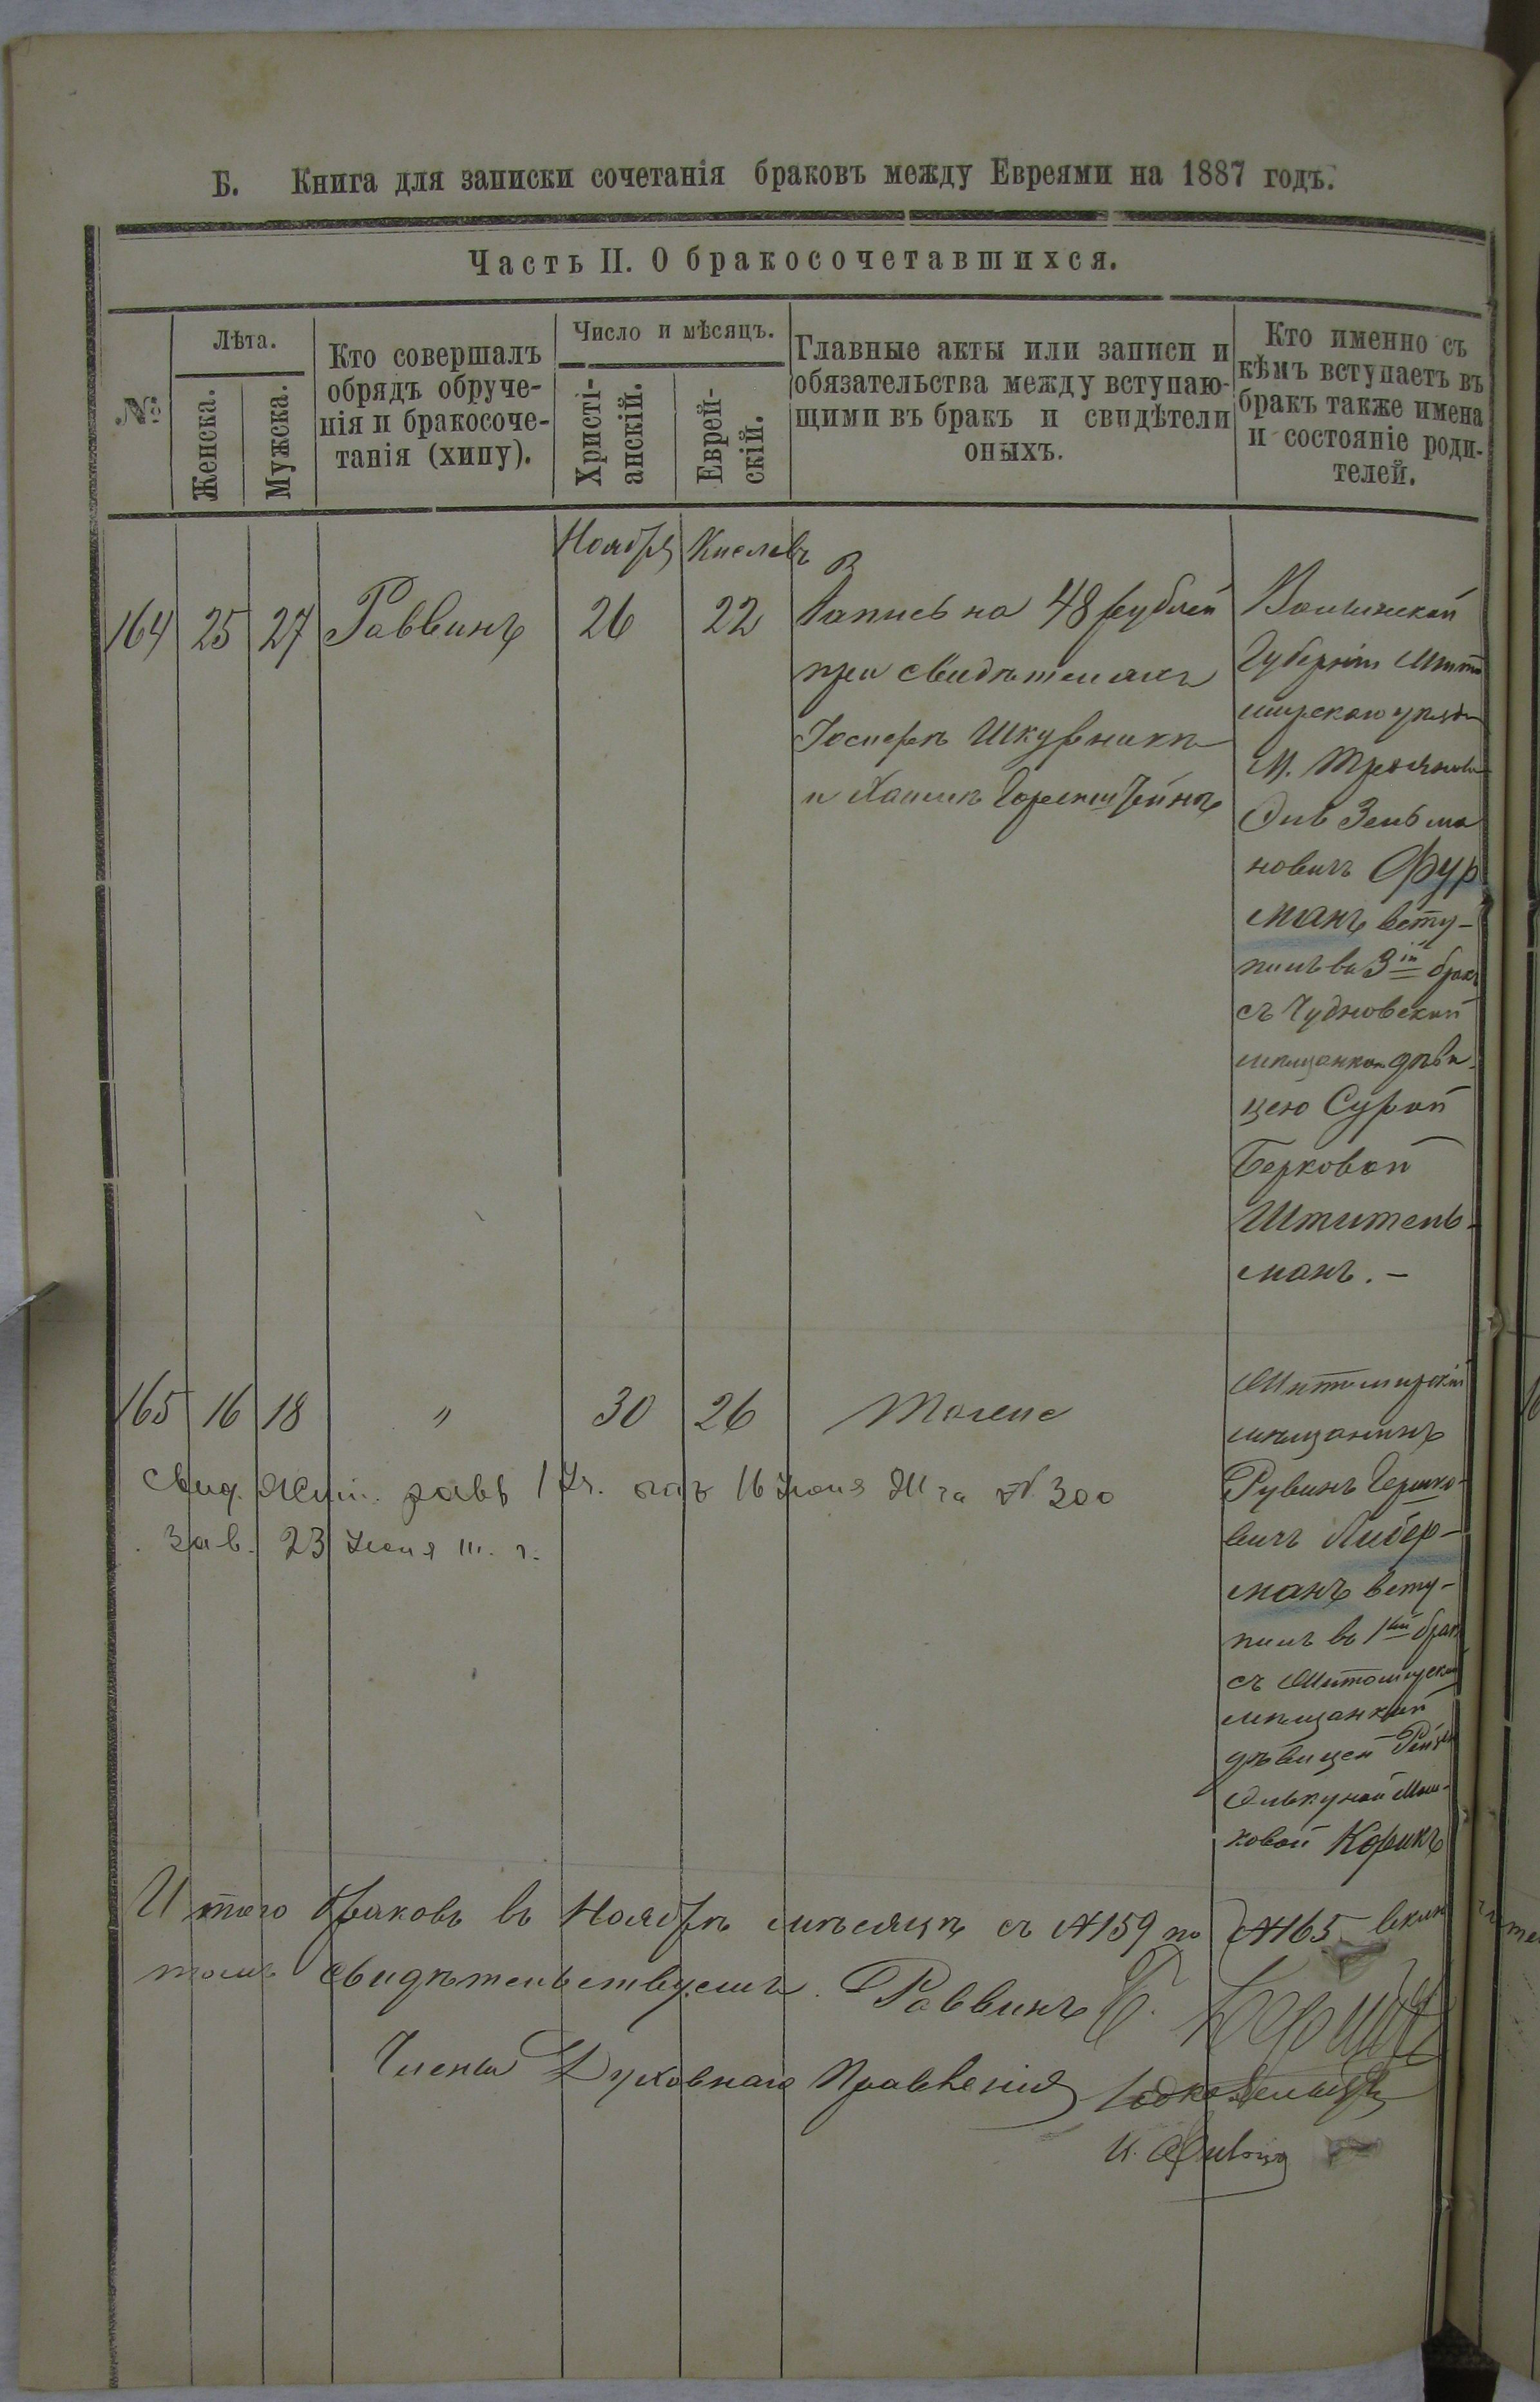 Б. Книга для записки сочетанія браковъ между Евреями на 1887 годъ.
Часть II. О бракосочетавшихся.
№
Лѣта.
Женска.
Мужска.
Кто совершалъ
обрядъ обруче-
нія и бракосоче-
танія (хипу).
Число и мѣсяцъ.
Христі-
анскій.
Еврей-
скій.
Главные акты или записи и
обязательства между вступаю-
щими въ бракъ и свидѣтели
оныхъ.
Кто именно съ
кѣмъ вступаетъ въ
бракъ также имена
и состояніе роди-
телей.
Ноября Кислевъ
164 25 27 Раввинъ 26 22
Запись на 48 рублей
при свидѣтеляхъ
Іосифѣ Шкурникѣ
и Хаимѣ Горенштейнѣ
Волынской
Губерніи Жито
мирскаго уѣзда
М. Троянова
Зельма
новичъ Фур
манъ всту-
пилъ въ 3ій бракъ
съ Чудновской
мѣщанкою дѣви-
цею Сурой
Берковой
Штитель-
манъ. -
165 16 18 " 30 26 Тоже
Свид. Жит. равв 1 Уч. отъ 16 Іюня за № 300
Зав. 23 Іюня т. г.
Житомирскій
мѣщанинъ
Рувинъ Гершко-
вичъ Либер-
манъ всту-
пилъ въ 1ый бракъ
съ Житомирской
мѣщанкой
дѣвицей
Мош-
ковой Корикъ
Итого браковъ въ Ноябрѣ мѣсяцѣ съ №159 по №165 въ
томъ свидѣтельствуемъ. Раввинъ
Члены Духовнаго Правленія